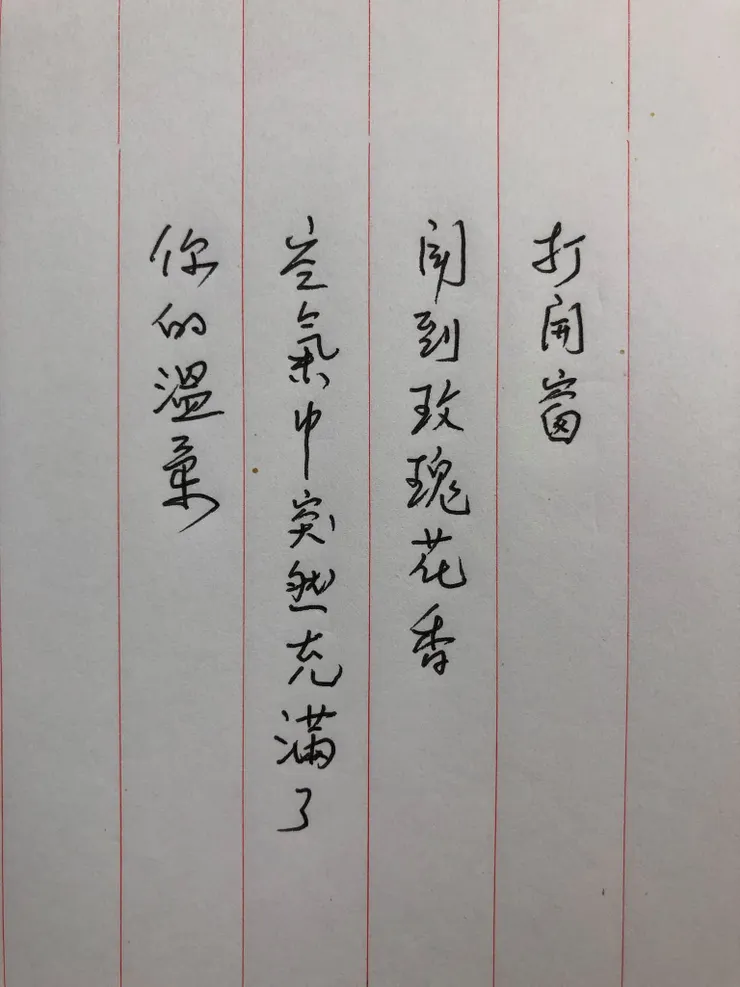 打開窗
聞到玫瑰花香
空氣中突然充滿了
你的溫柔